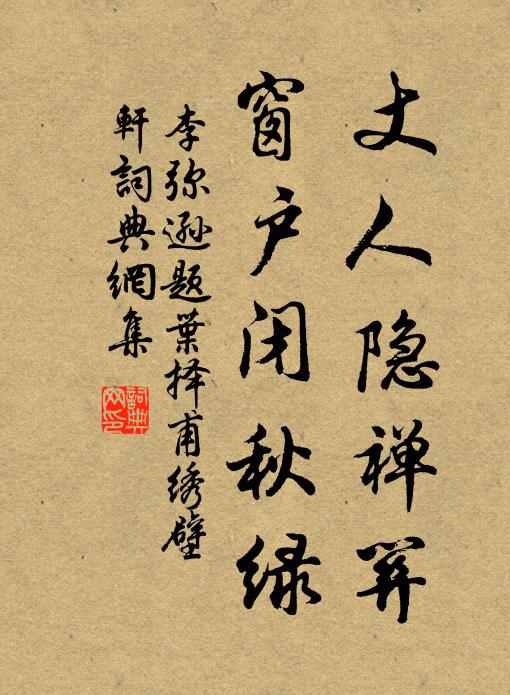 丈人隐禅关
窗户闭秋绿
李弥逊题叶择甫绣壁
軒詞典網集
詞典網印